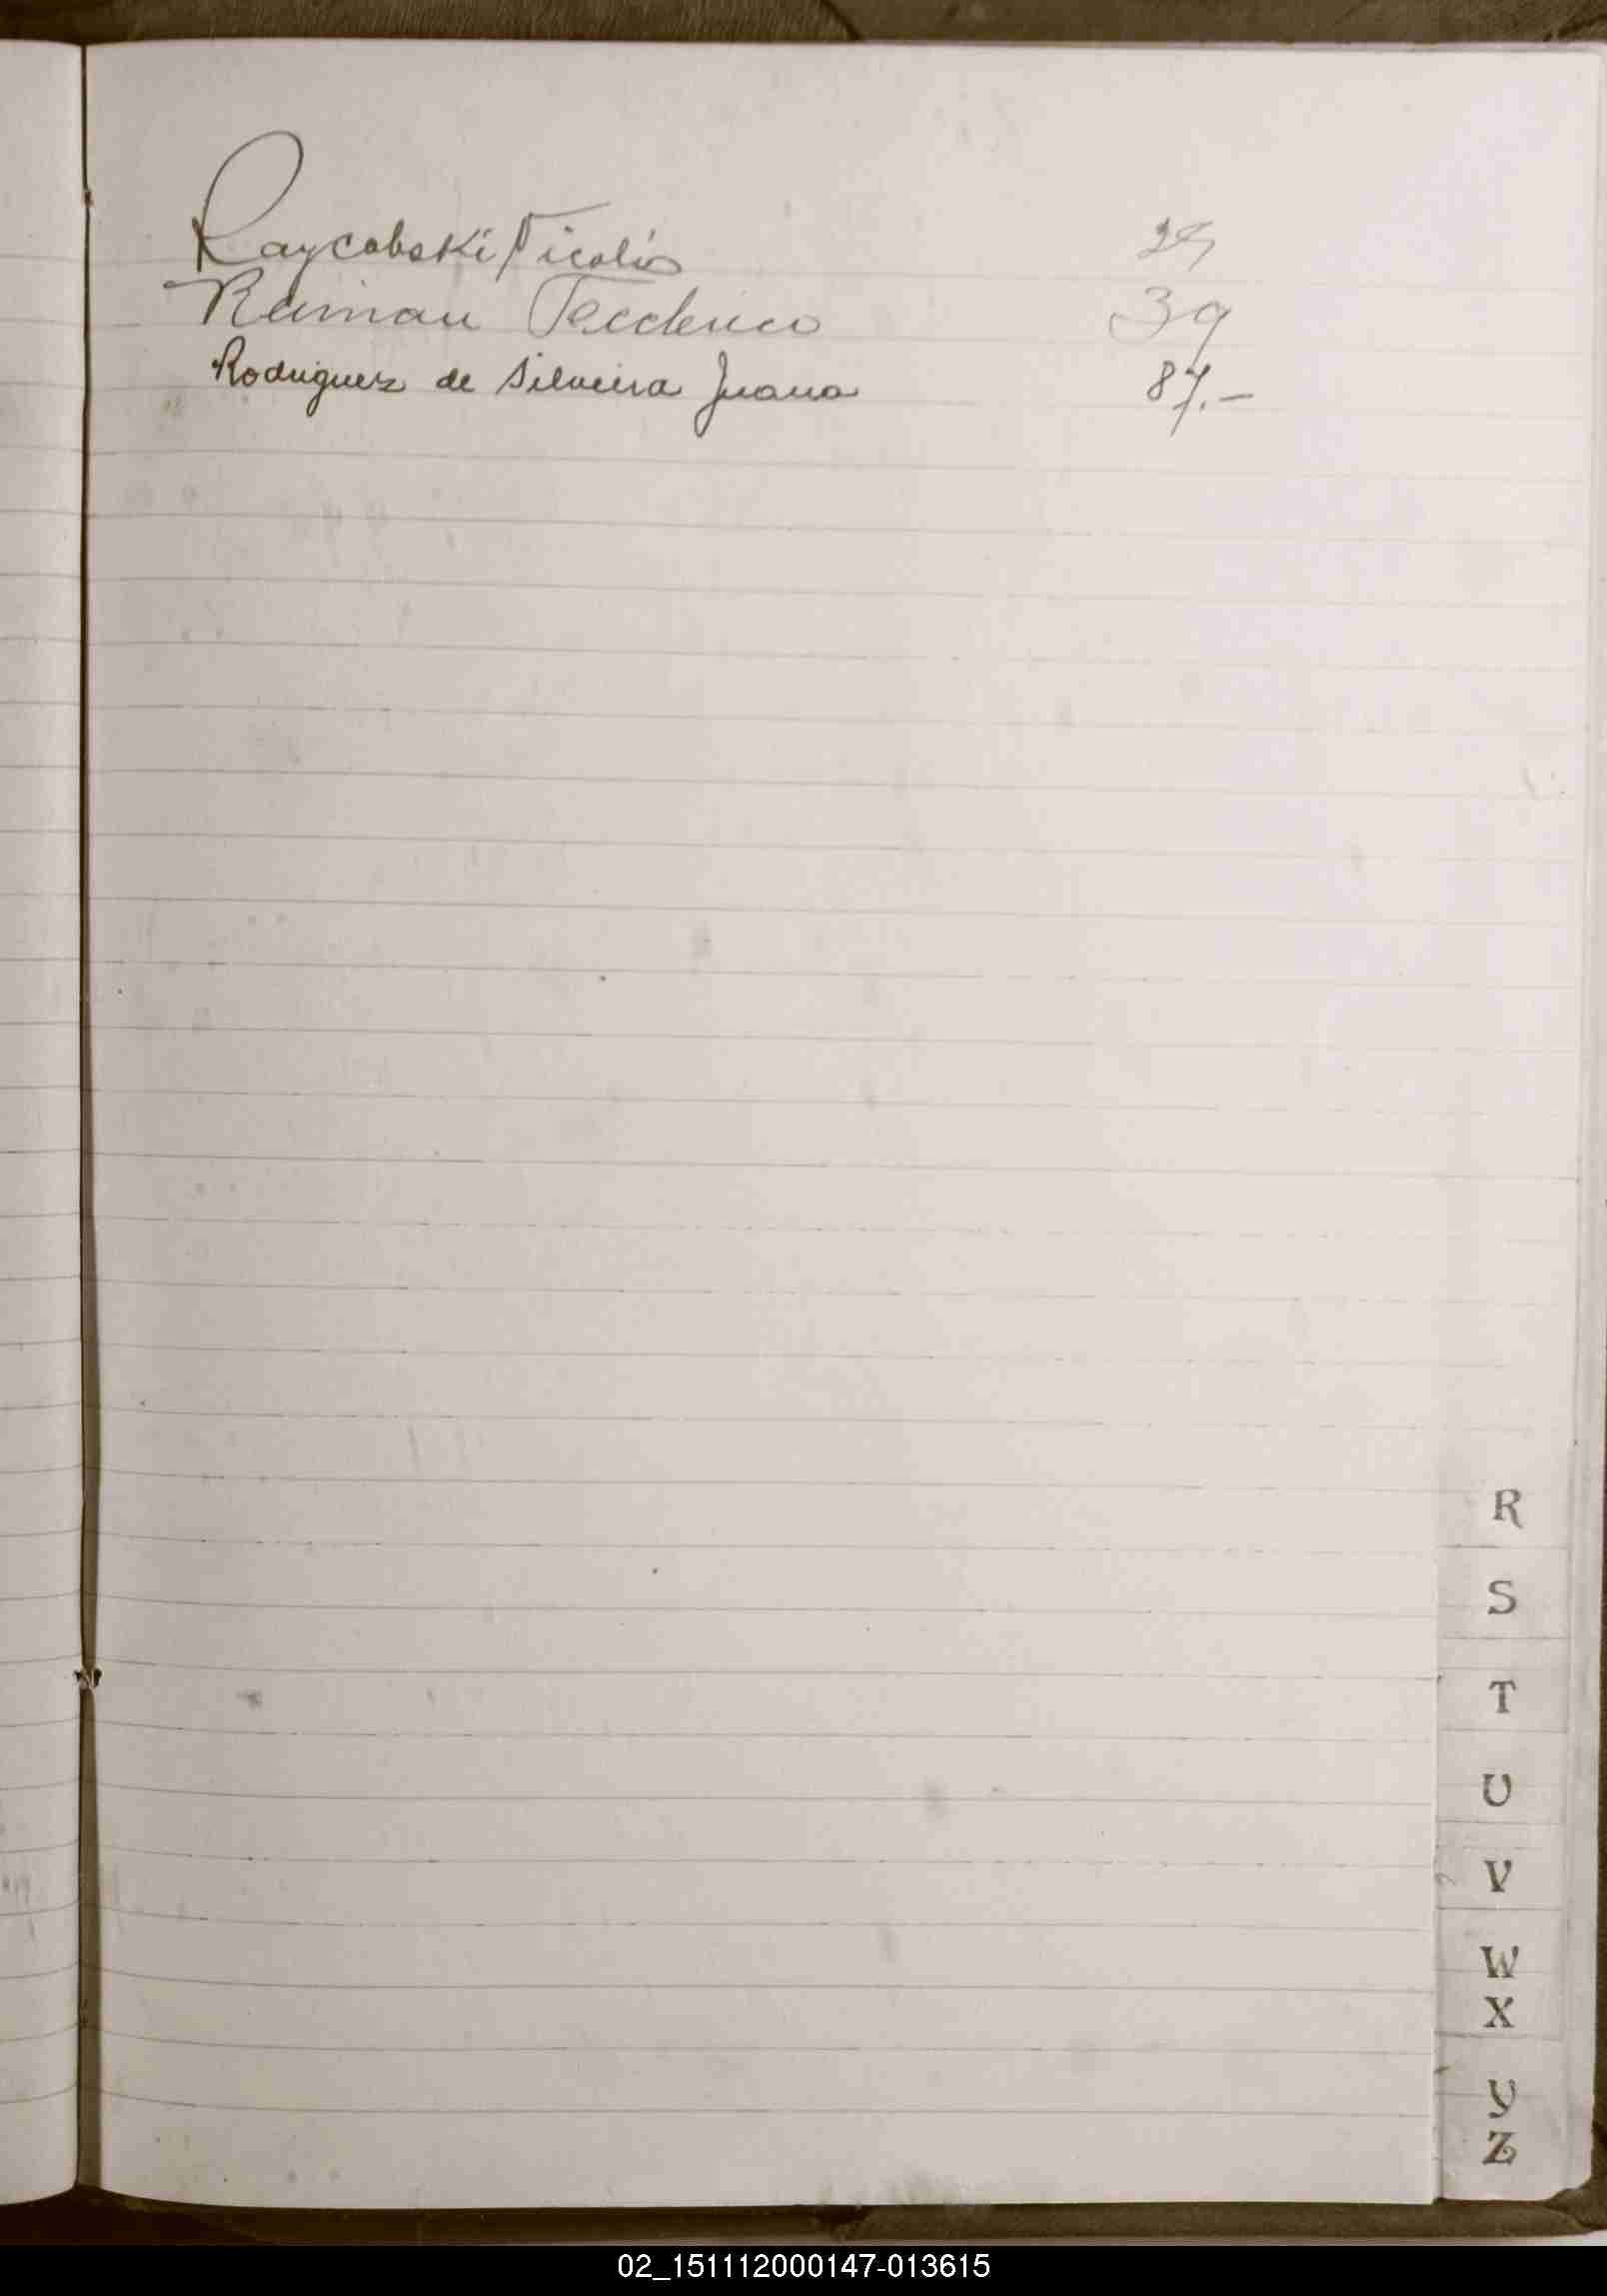 Raycaboski Nicolás 29
Reiman Federico 39
Rodriguez de Silveira Juana 87.-
R
S
T
U
V
W
X
Y
Z
02_151112000147-013615